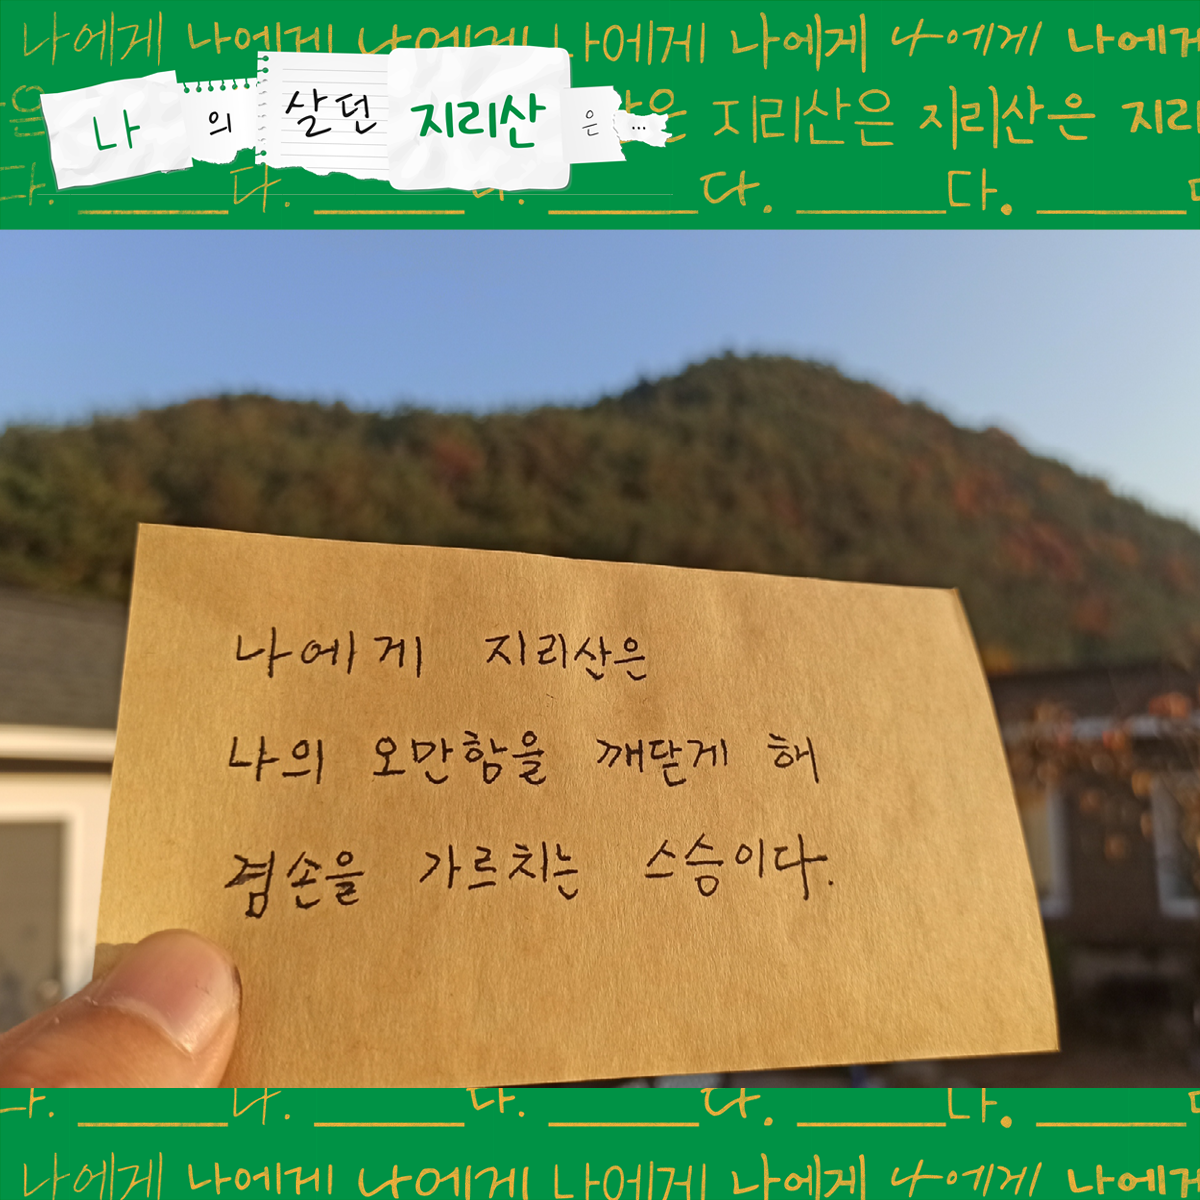 나에게 나에게 나에게 나에게 나에게 나에게 나에게
은 산은 지리산은 지리산은 지리
나의 살던 지리산은...
다. 다. 다. 다. 다.
나에게 지리산은
나의 오만함을 깨닫게 해
겸손을 가르치는 스승이다.
다. 다. 다. 다. 다.
나에게 나에게 나에게 나에게 나에게 나에게 나에게